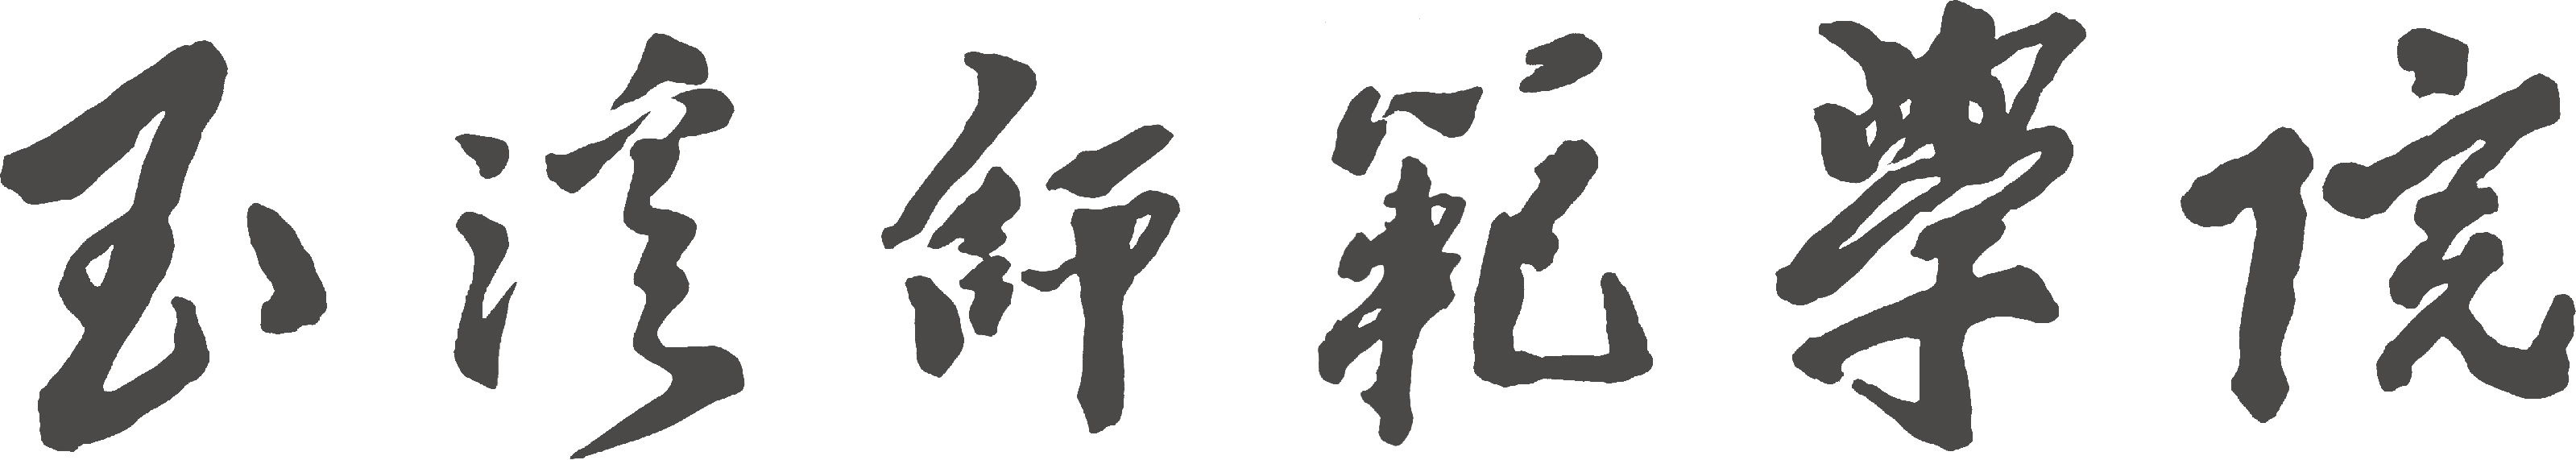 玉溪师範學院